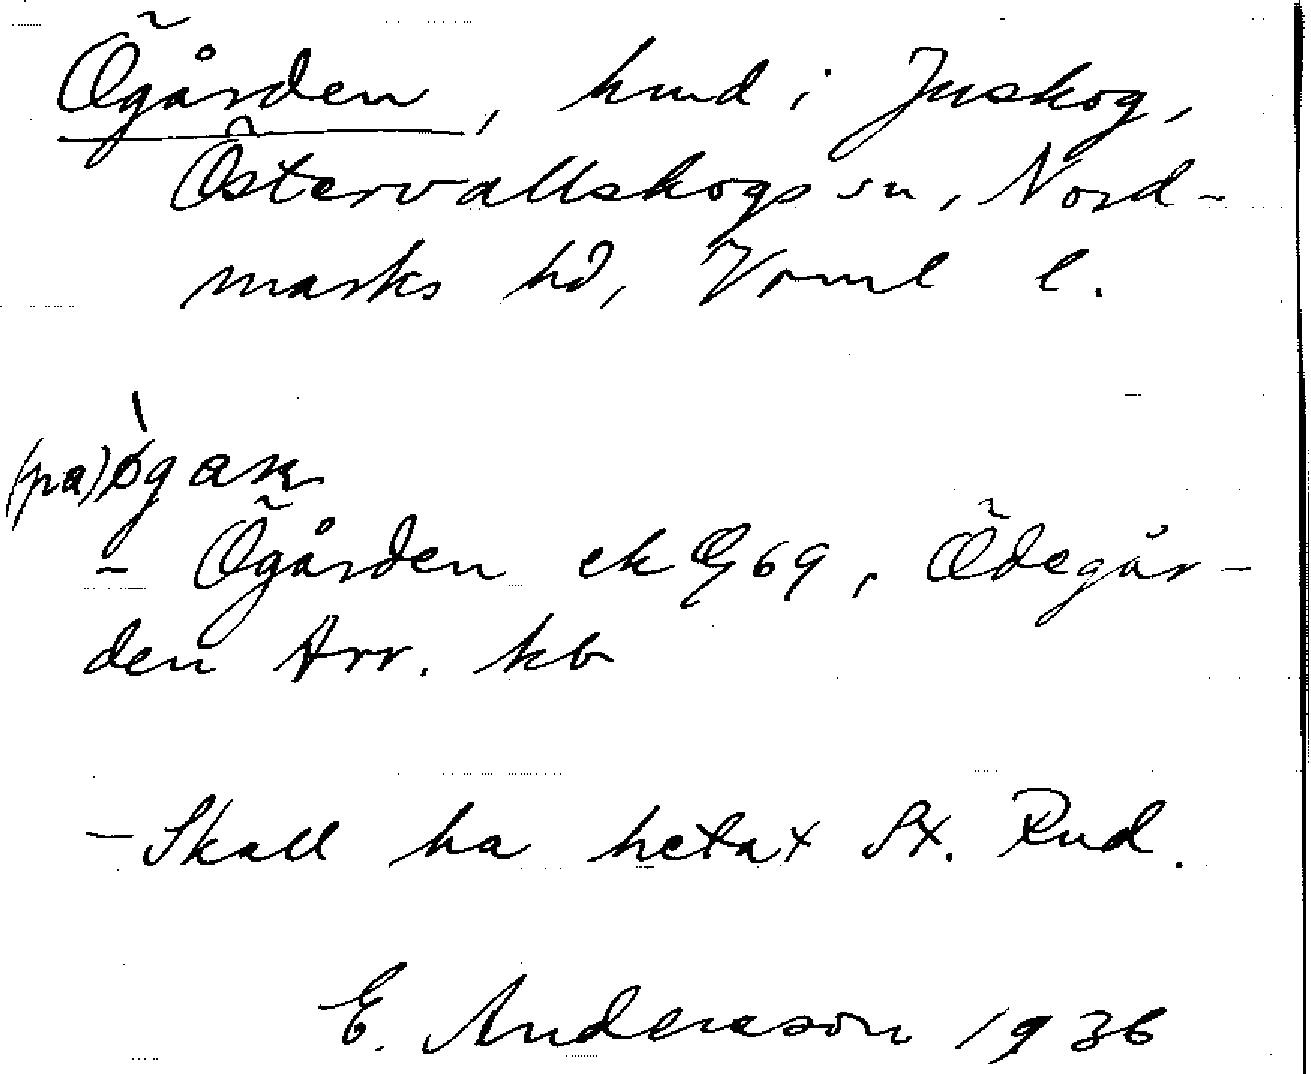 Ögården, hmd i Juskog,
Östervallskogs sn, Nord-
marks hd, Vrml l.
(på) øgaɳ
– Ögården ek 69, Ödegår-
den Arr. kb
– Skall ha hetat St. Rud.
E. Andersson 1936